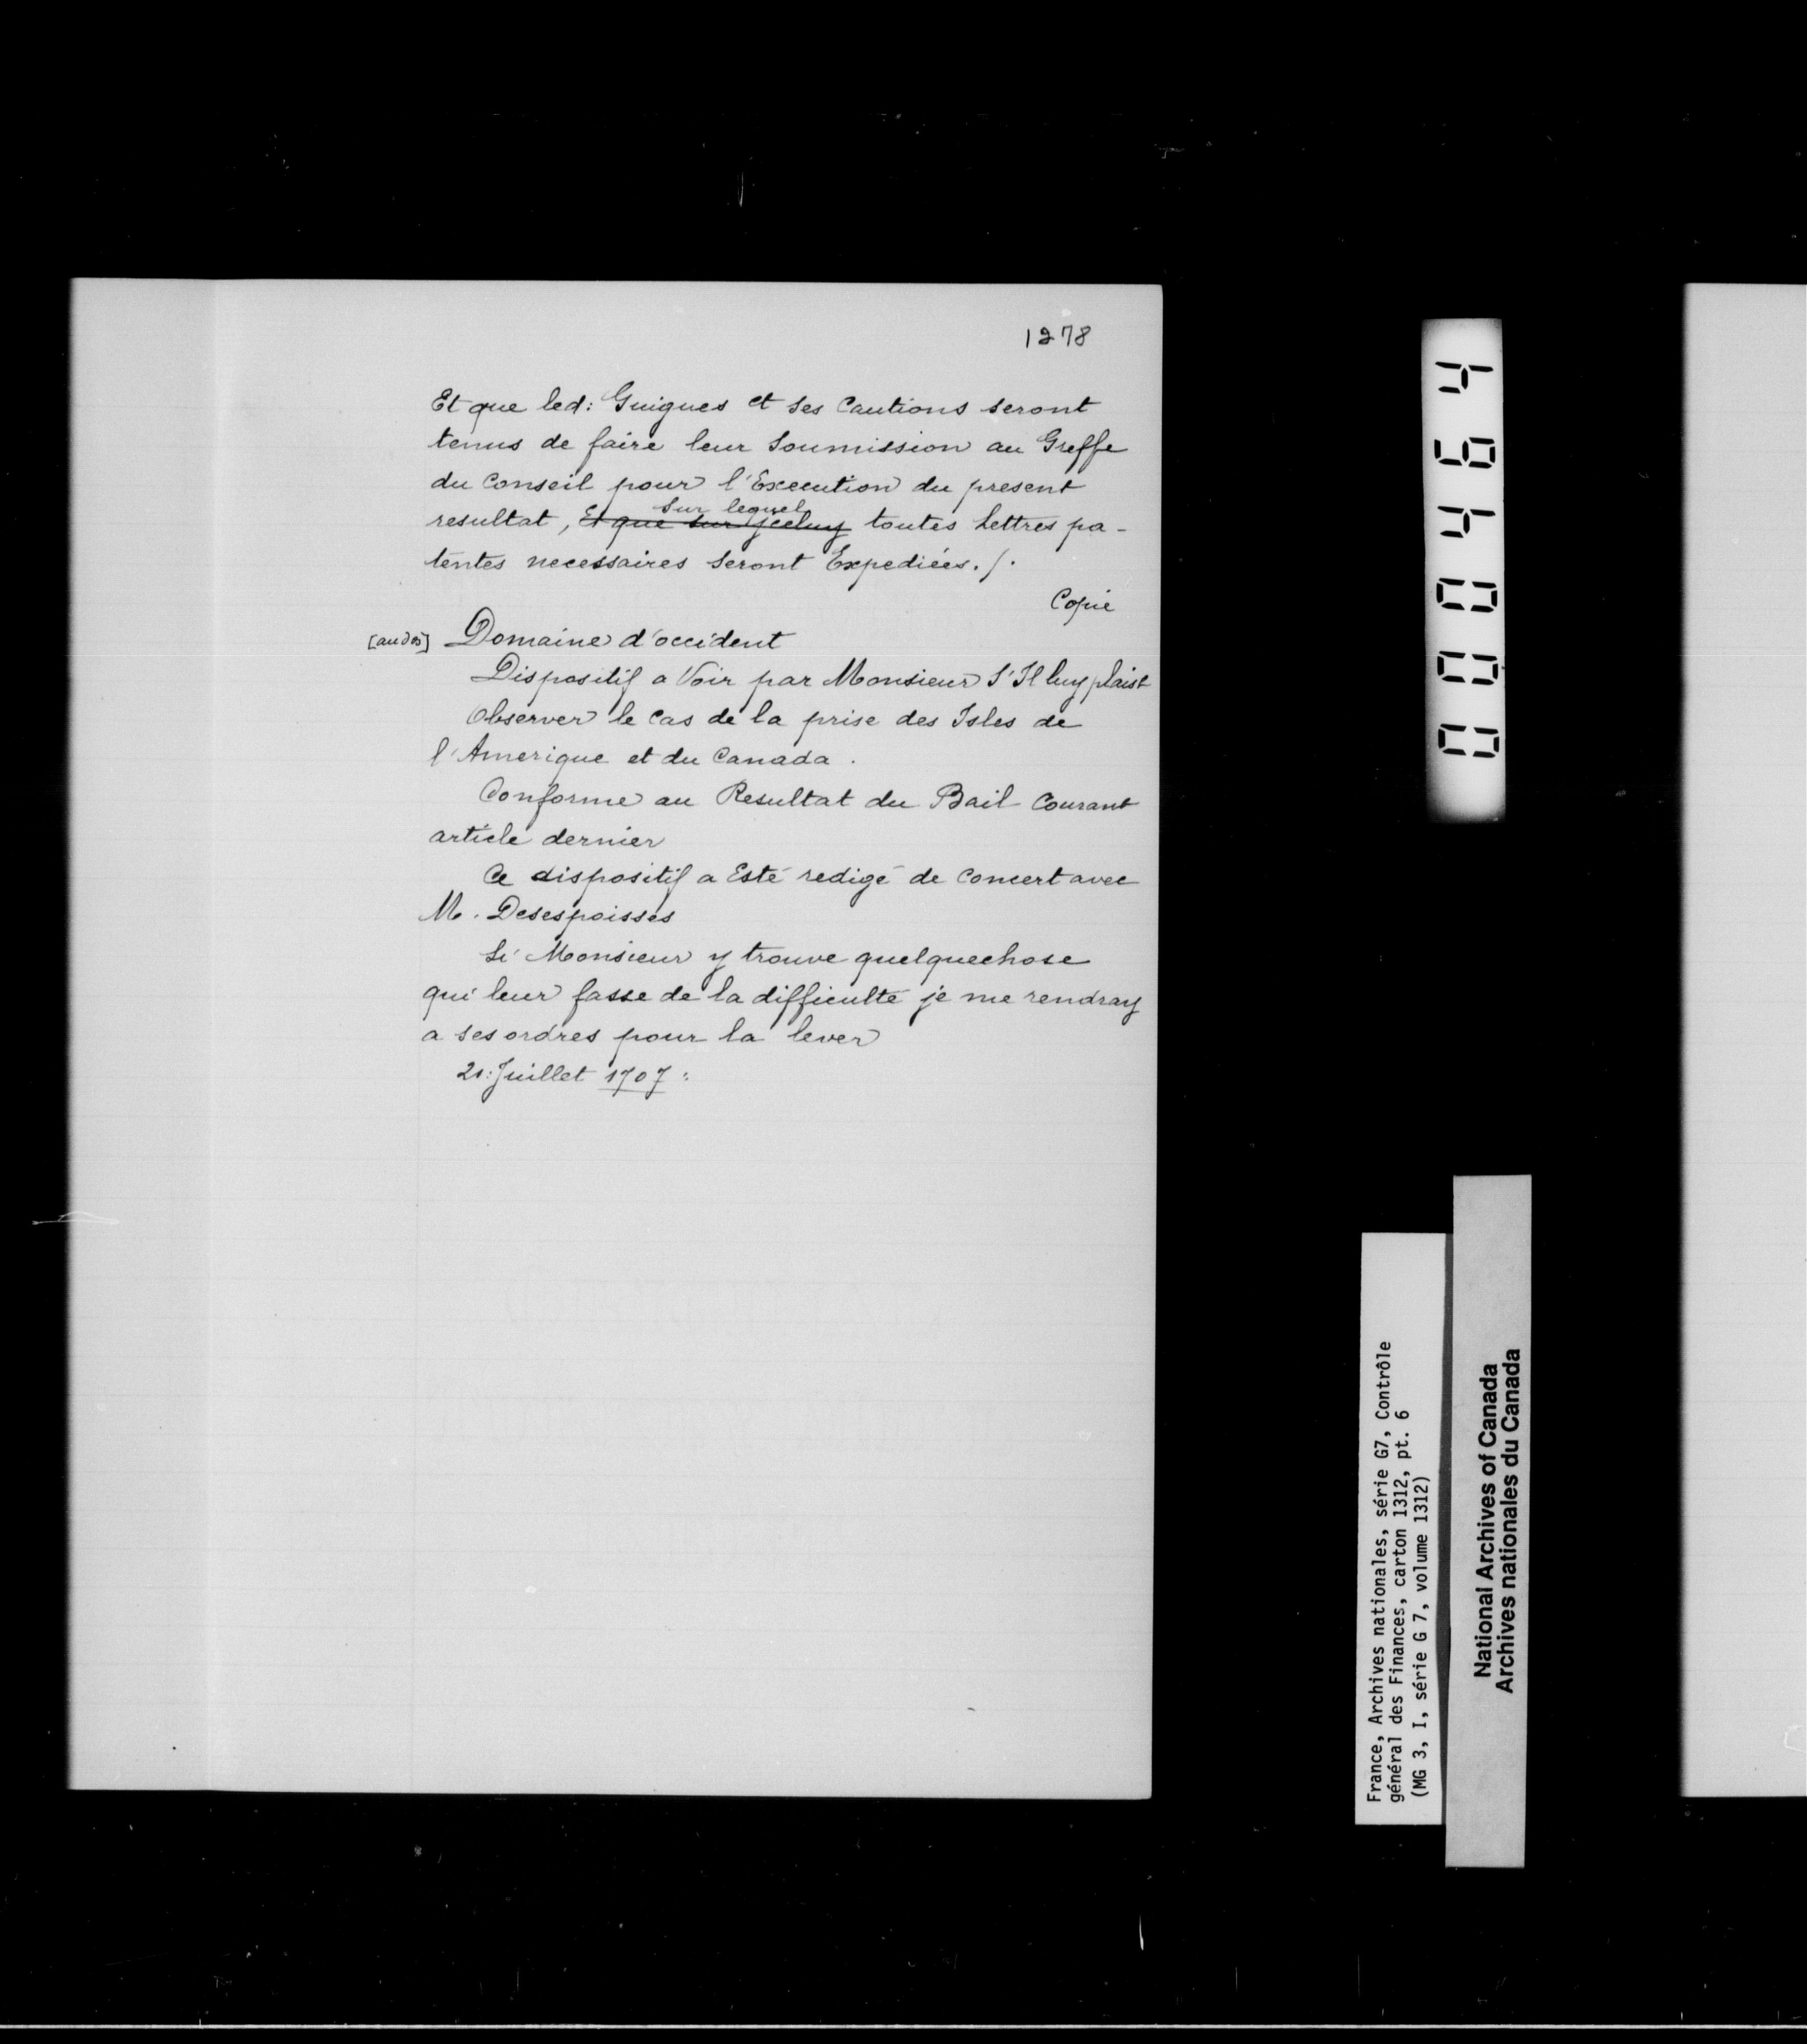 1278
Et que led: Guigues et ses Cautions seront
tenus de faire leur Soumission au Greffe
du Conseil pour l'Execution du present
Sur lequel
resultat, Et que sur yceluy toutes Lettres pa-
tentes necessaires Seront Expediées./.
Copie
[au dos] Domaine d'occident
Dispositif a Voir par Monsieur S'Il luy plaist
Observer le Cas de la prise des Isles de
l'Amerique et du Canada.
Conforme au Resultat du Bail Courant
article dernier
Ce dispositif a Esté redigé de Concert avec
M. Desespoisses
Si Monsieur y trouve quelquechose
qui leur fasse de la difficulté je me rendray
a ses ordres pour la lever
21: Juillet 1707:
000464
France, Archives nationales, série G7, Contrôle
général des Finances, carton 1312, pt. 6
(MG 3, I, série G 7, volume 1312)
National Archives of Canada
Archives nationales du Canada